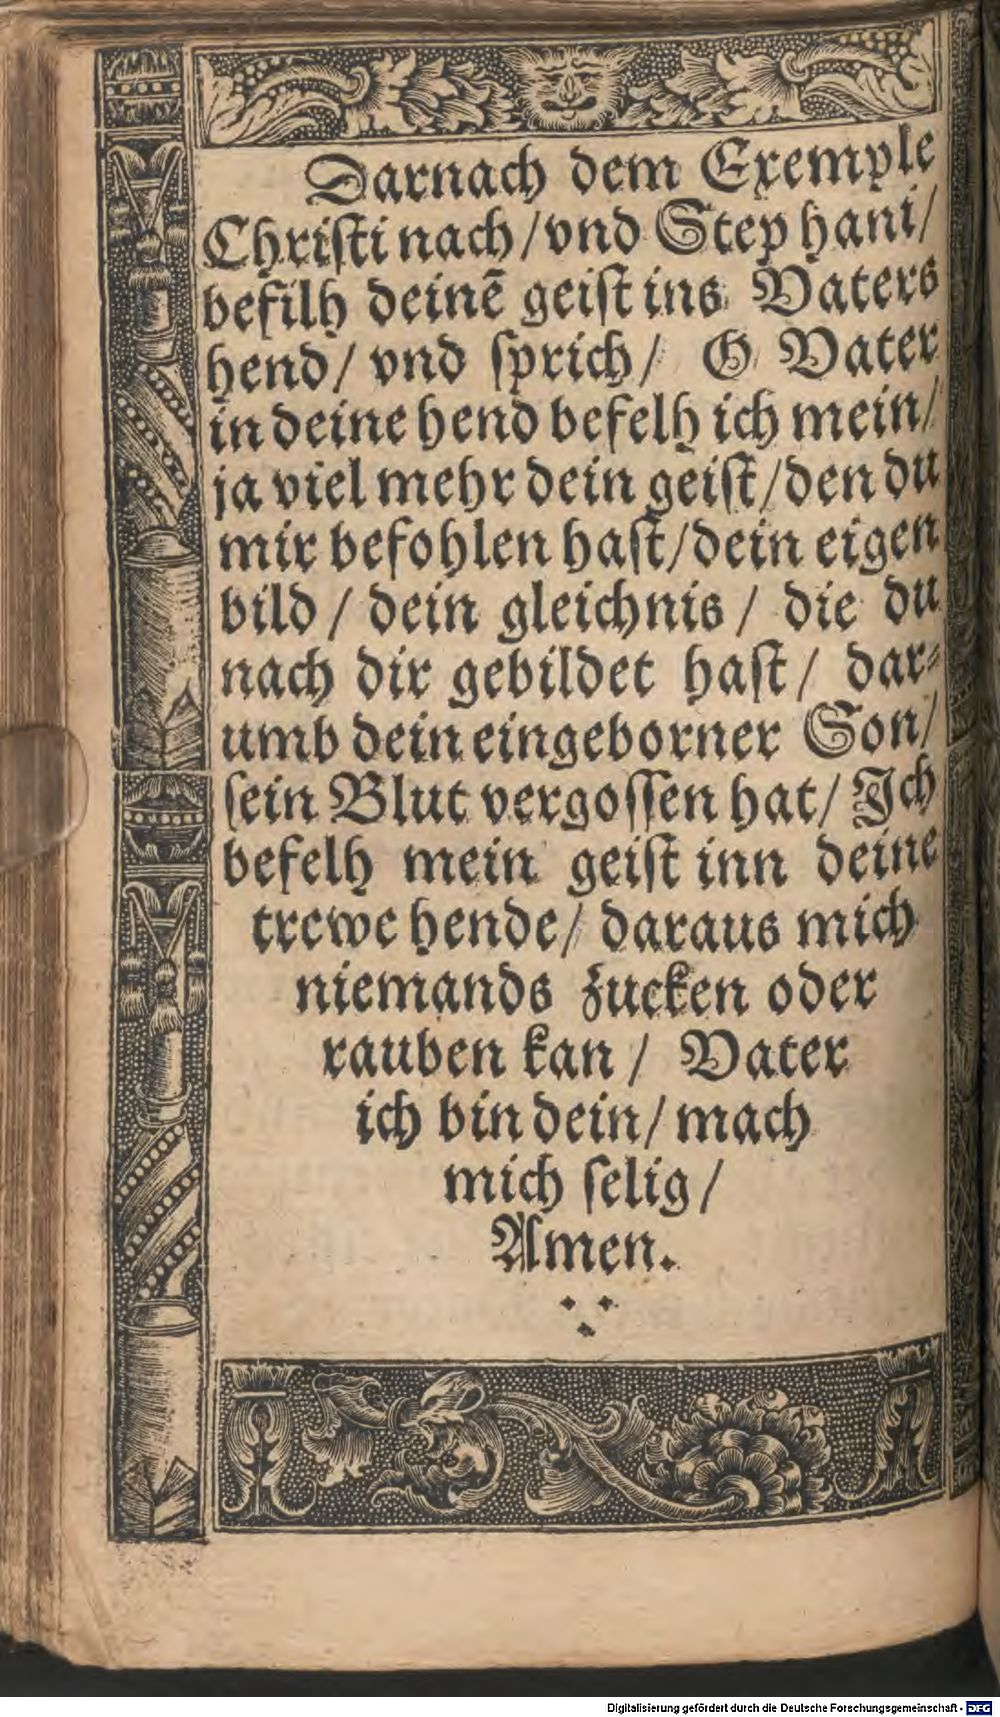 Darnach dem Exemple
Chriſti nach/vnd Stephani/
befilh deinē geiſt ins Vaters
hend/ vnd ſprich/ O Vater
in deine hend befelh ich mein/
ja viel mehr dein geiſt/den du
mir befohlen haſt/dein eigen
bild/ dein gleichnis/ die du
nach dir gebildet haſt/ dar⸗
umb dein eingeborner Son/
ſein Blut vergoſſen hat/ Ich
befelh mein geiſt inn deine
trewe hende/ daraus mich
niemands zucken oder
rauben kan/ Vater
ich bin dein/ mach
mich ſelig/
Amen.
Digitalisierung gefördert durch die Deutsche Forschungsgemeinschaft - DFG